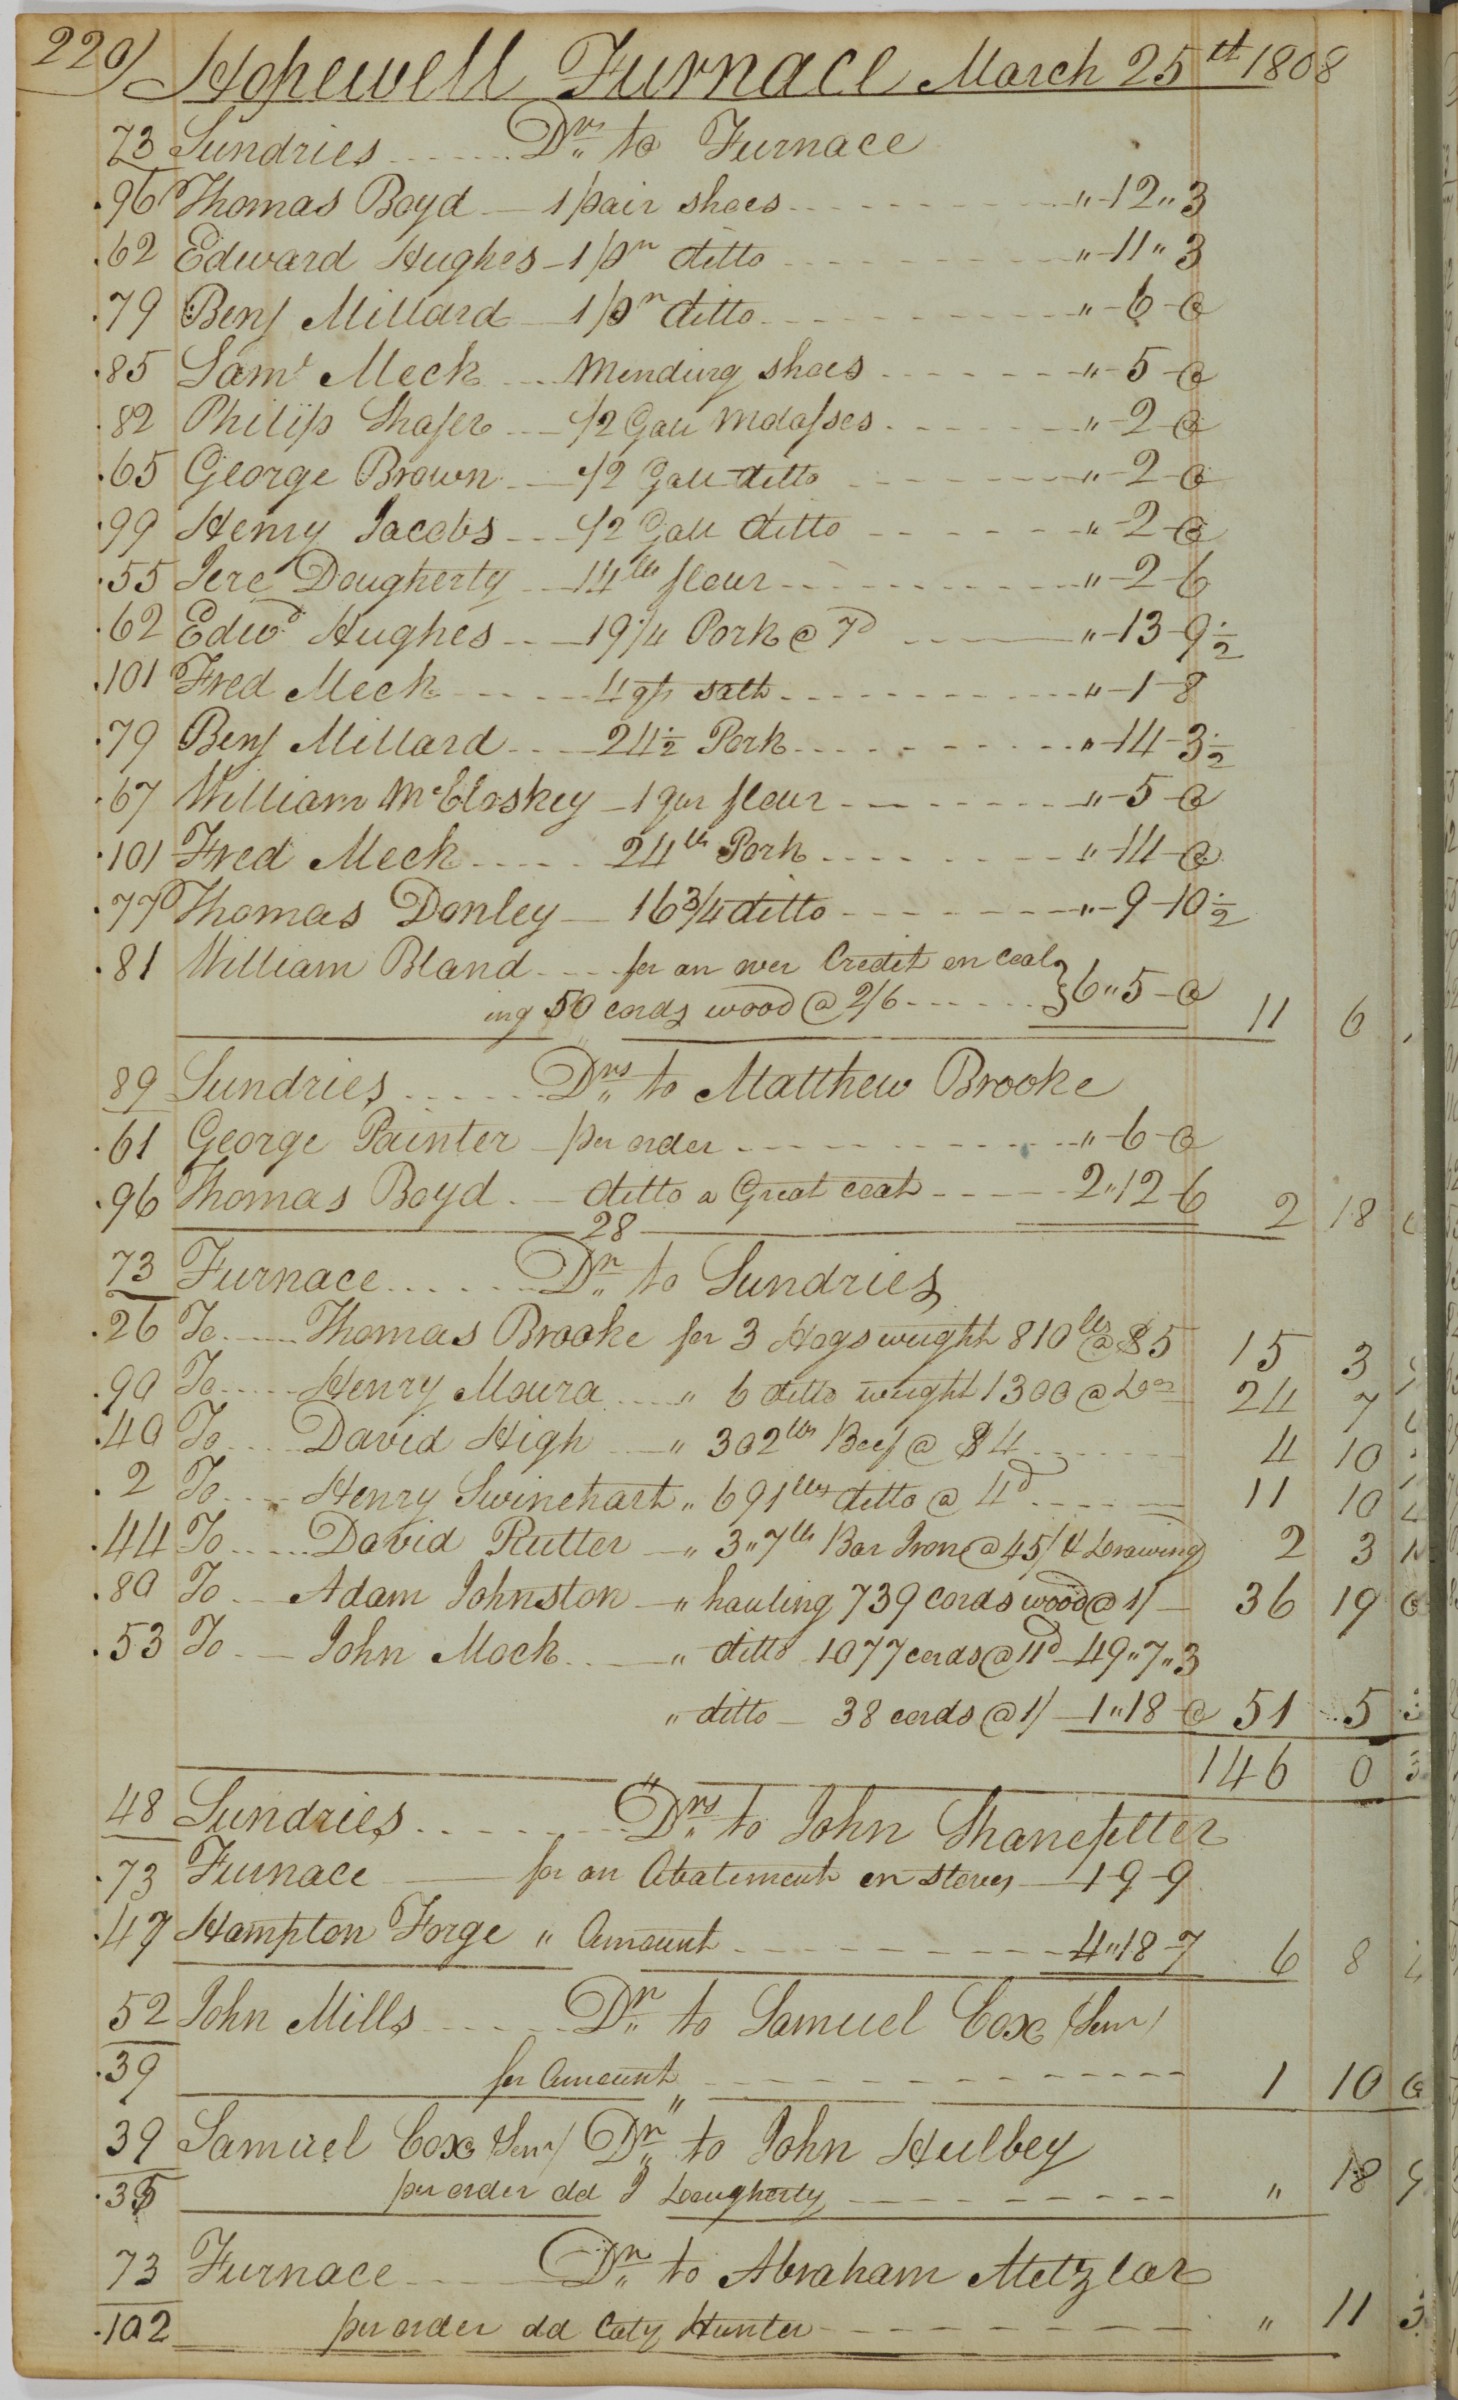 220) Hopewell Furnace March 25th 1808
73 Sundries Drs to Furnace
96 Thomas Boyd 1 pair shoes " 12 " 3
62 Edward Hughes 1 pr ditto " 11 " 3
79 Benj Millard 1 pr ditto " 6 0
85 Saml Meck Mending shoes " 5 0
82 Philip Shafer 1/2 Gall Molasses " 2 0
65 George Brown 1/2 Gall ditto " 2 0
99 Henry Jacobs 1/2 Gall ditto " 2 0
55 Jere Dougherty 14 lb flour " 2 6
62 Edwd Hughes 19 1/4 Pork @ 7d " 13 9 1/2
101 Fred Meck 4 qts salt " 1 8
79 Benj Millard 24 1/2 Pork " 14 3 1/2
67 William McCloskey 1 qur flour " 5 0
101 Fred Meck 24 lb Pork " 14 0
77 Thomas Donley 16 3/4 ditto " 9 10 1/2
81 William Bland for an over Credit on coal
ing 50 cords wood @ 2/6 6 " 5 0 11 6
89 Sundries Drs to Matthew Brooke
61 George Painter per order " 6 0
96 Thomas Boyd ditto a Great coat 2 " 12 6 2 18
28
73 Furnace Dr to Sundries
26 To Thomas Brooke for 3 Hogs weight 810 lbs @ $5 15 3
90 To Henry Moura " 6 ditto weight 1300 @ Do 24 7
40 To David High " 302 lbs Beef @ $4 4 10
2 To Henry Swinehart " 691 lbs ditto @ 4d 11 10
44 To David Rutter " 3 " 7 lb Bar Iron @ 45/ & Drawing 2 3
80 To Adam Johnston " hauling 739 cords wood @ 1/ 36 19 0
53 To John Mock " ditto 1077 cords @ 11d 49 " 7 " 3
" ditto 38 cords @ 1/ 1 " 18 0 51 5 3
146 0 3
48 Sundries Drs to John Shanefelter
73 Furnace for an Abatement on stoves 1 9 9
47 Hampton Forge " Amount 4 " 18 7 6 8
52 John Mills Dr to Samuel Cox (Senr)
39 for Amount 1 10 0
39 Samuel Cox (Senr) Dr to John Hulbey
35 per order dd J Dougherty " 18 9
73 Furnace Dr to Abraham Metzlar
102 per order dd Caty Hunter " 11 3